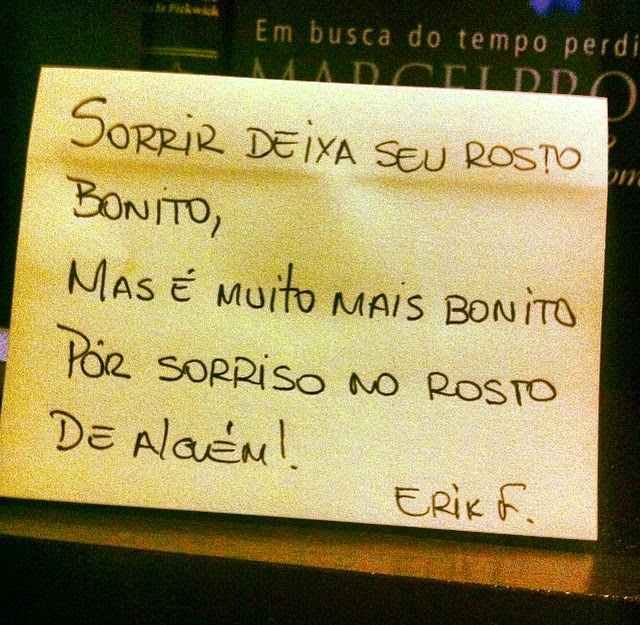 Sr Pickwick
Em busca do tempo perdi
MARCEL PRO
om
SORRIR DEIXA SEU ROSTO
BONITO,
MAS É MUITO MAIS BONITO
PÔR SORRISO NO ROSTO
DE AlGUÉM!
ERIK F.